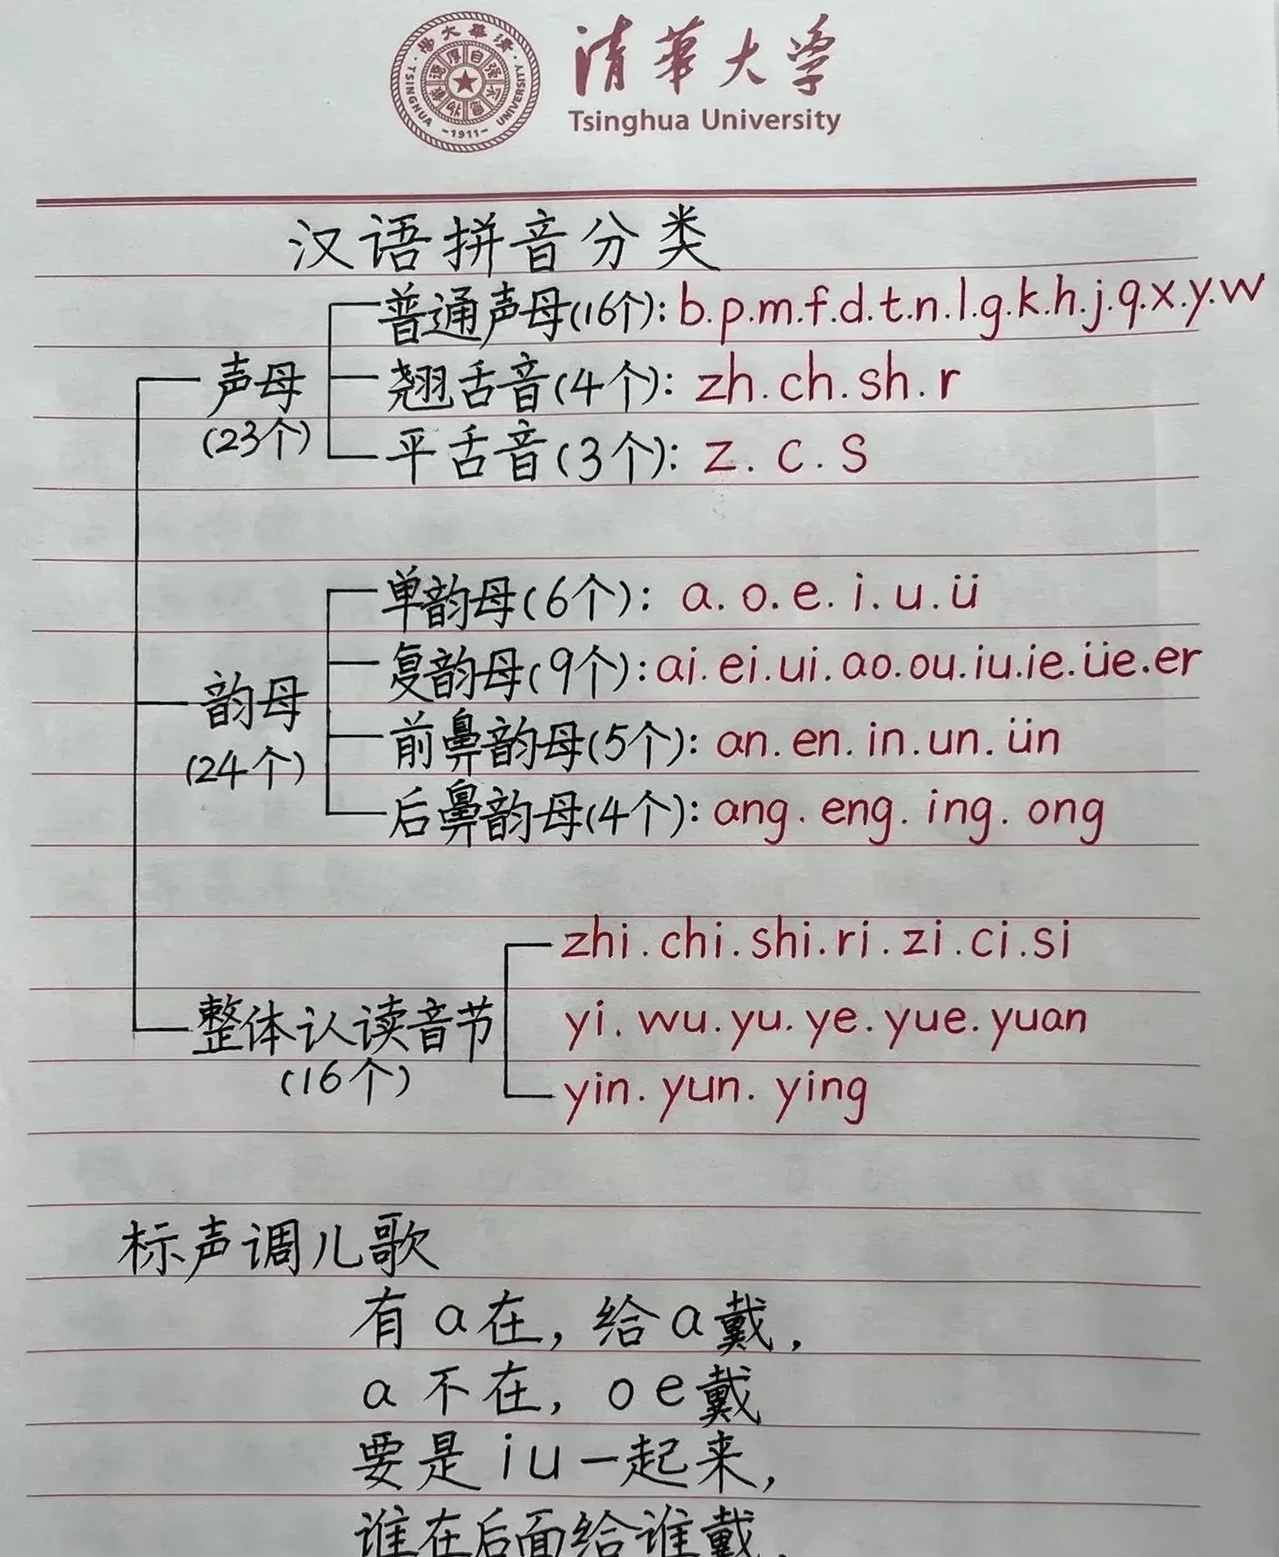 清華大学
Tsinghua University
TSINGHUA UNIVERSITY
-1911-
汉语拼音分类
声母
(23个)
普通声母(16个): b.p.m.f.d.t.n.l.g.k.h.j.q.x.y.w
翘舌音(4个): zh.ch.sh.r
平舌音(3个): z.c.s
韵母
(24个)
单韵母(6个): a.o.e.i.u.ü
复韵母(9个): ai.ei.ui.ao.ou.iu.ie.üe.er
前鼻韵母(5个): an.en.in.un.ün
后鼻韵母(4个): ang.eng.ing.ong
整体认读音节
(16个)
zhi.chi.shi.ri.zi.ci.si
yi.wu.yu.ye.yue.yuan
yin.yun.ying
标声调儿歌
有a在,给a戴,
a不在,oe戴
要是iu一起来,
谁在后面给谁戴.